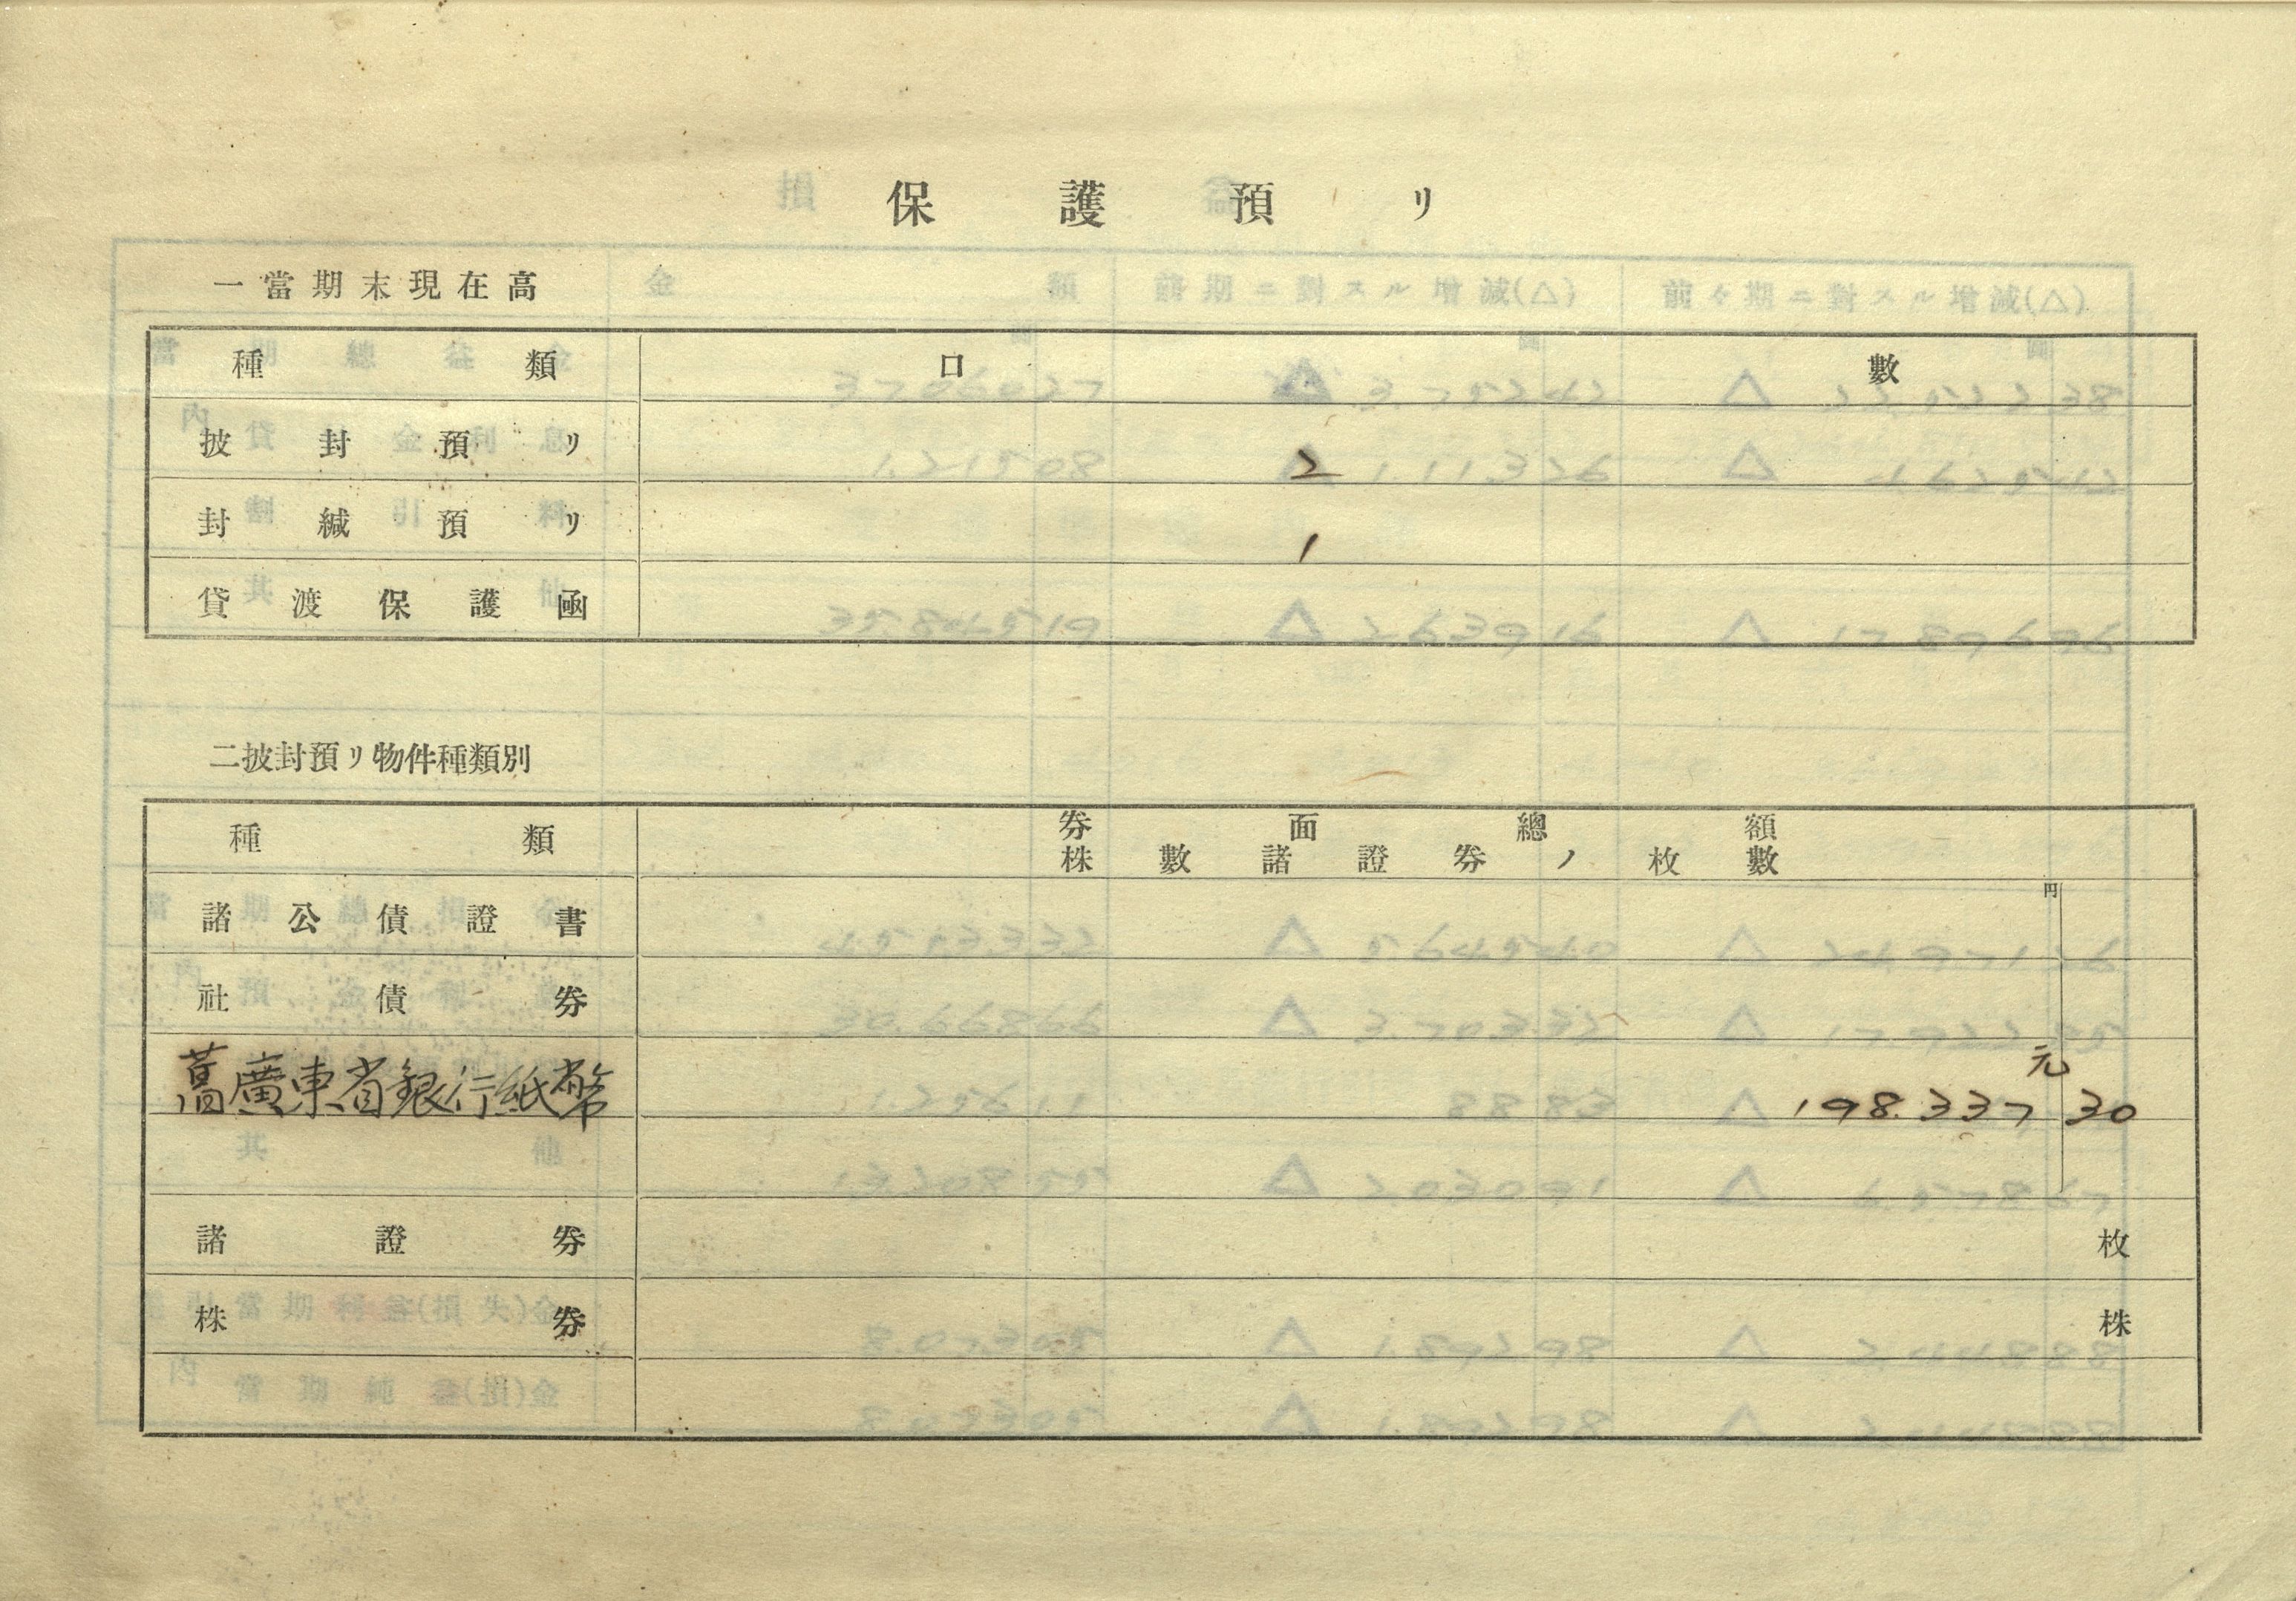 保護預リ
一當期末現在高
種類 口數
披封預リ 2
封緘預リ 1
貸渡保護凾
二披封預リ物件種類別
種類 券面總額
株數諸證券ノ枚數
諸公債證書 円
社債券
廣東省銀行紙幣 元 198.337 30
諸證券 枚
株券 株